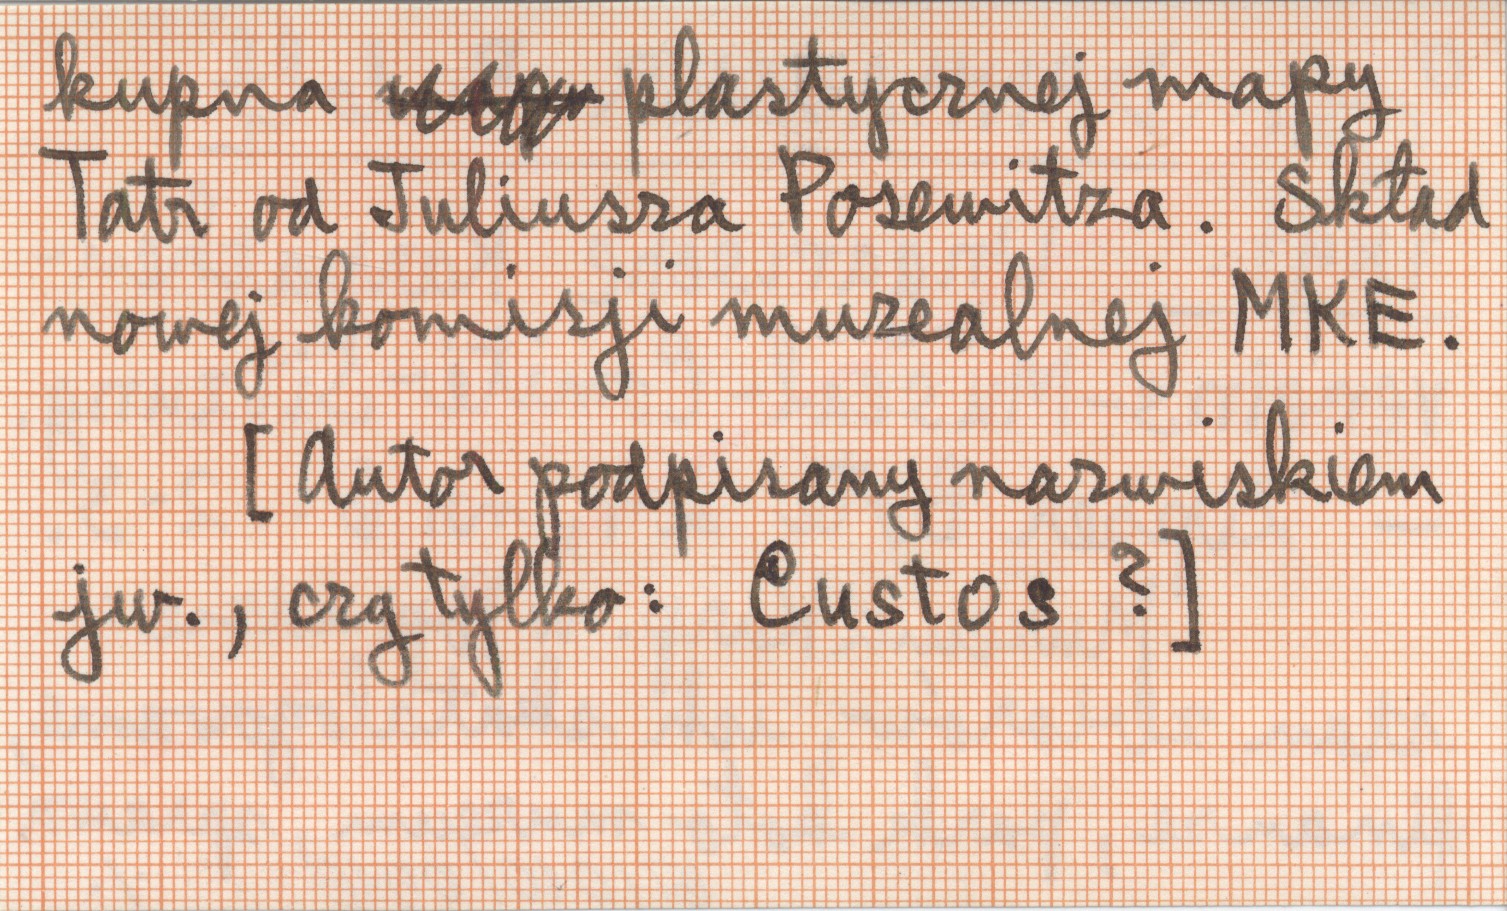 kupna plastycznej mapy
Tatr od Juliusza Posewitza. Skład
nowej komisji muzealnej MKE.
[Autor podpisany nazwiskiem
jw., czy tylko: Custos ?]